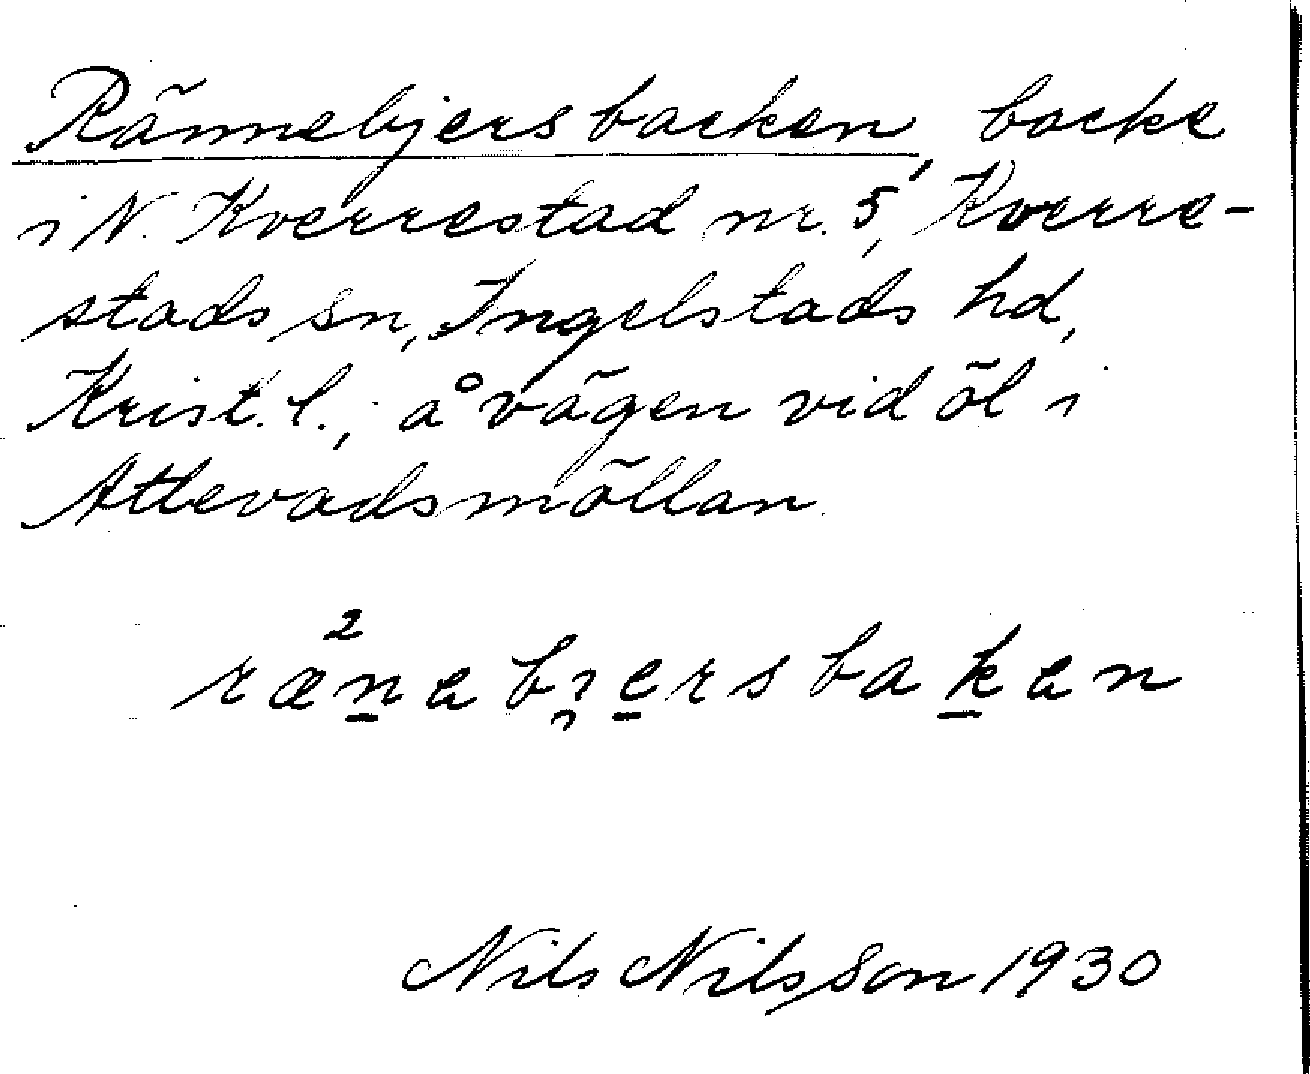 Rännebjersbacken, backe
i N. Kverrestad nr. 5, Kverre-
stads sn, Ingelstads hd,
Krist. l., å vägen vid öl i
Attevadsmöllan.
2
rænebjersbaken
Nils Nilsson 1930